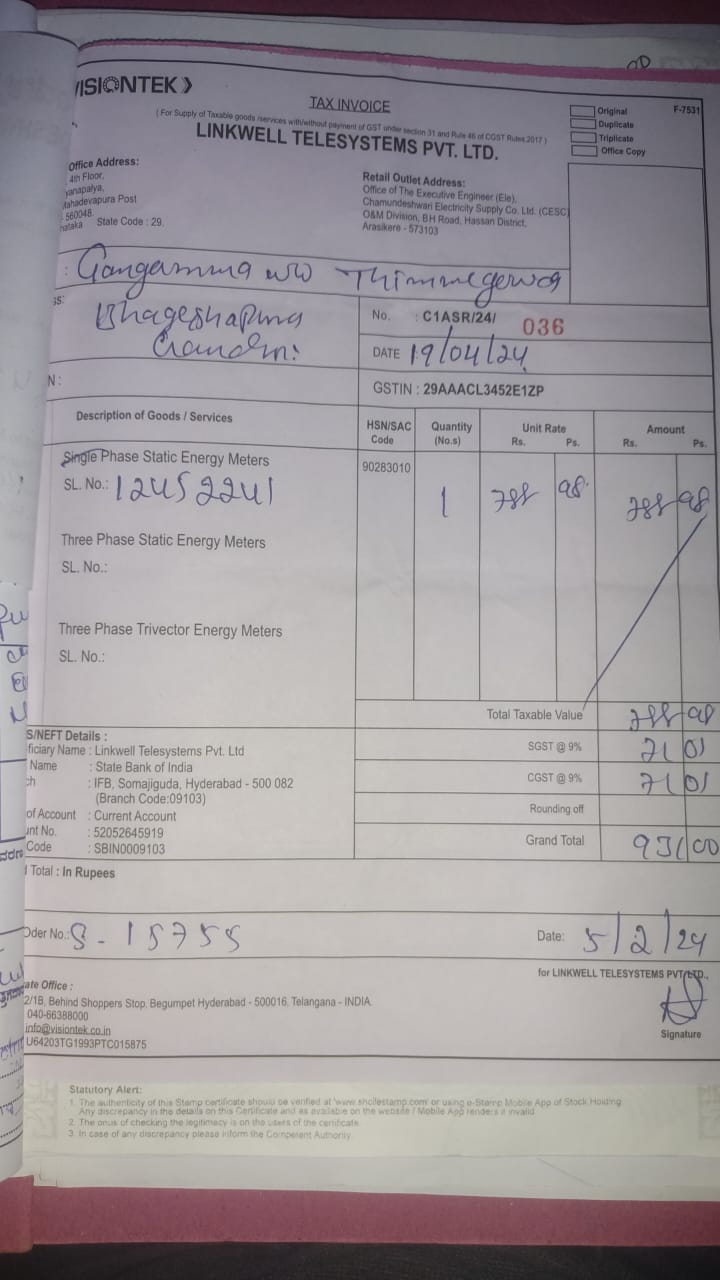 VISIONTEK
TAX INVOICE
( For Supply of Taxable goods /services with/without payment of GST under section 31 and Rule 46 of CGST Rules,2017 )
LINKWELL TELESYSTEMS PVT. LTD.
F-7531
Original
Duplicate
Triplicate
Office Copy
Office Address:
4th Floor,
560048.
State Code : 29.
Retail Outlet Address:
Office of The Executive Engineer (Ele),
Chamundeshwari Electricity Supply Co. Ltd. (CESC)
O&M Division, BH Road, Hassan District,
Arasikere - 573103
: Gangamma w/o Thimmegowda
No. : C1ASR/24/ 036
DATE 19/04/24
GSTIN : 29AAACL3452E1ZP
Description of Goods / Services HSN/SAC Code Quantity (No.s) Unit Rate Rs. Ps. Amount Rs. Ps.
Single Phase Static Energy Meters 90283010
SL. No.: 12452241 1 788 98 788 98
Three Phase Static Energy Meters
SL. No.:
Three Phase Trivector Energy Meters
SL. No.:
Total Taxable Value 788 98
SGST @ 9% 71 01
CGST @ 9% 71 01
Rounding off
Grand Total 931 00
S/NEFT Details :
ficiary Name : Linkwell Telesystems Pvt. Ltd
Name : State Bank of India
: IFB, Somajiguda, Hyderabad - 500 082
(Branch Code:09103)
of Account : Current Account
No. : 52052645919
Code : SBIN0009103
Total : In Rupees
Oder No.: S-15755 Date: 5/2/24
for LINKWELL TELESYSTEMS PVT. LTD.,
Signature
ate Office :
2/1B, Behind Shoppers Stop, Begumpet Hyderabad - 500016, Telangana - INDIA.
040-66388000
info@visiontek.co.in
U64203TG1993PTC015875
Statutory Alert:
1. The authenticity of this Stamp certificate should be verified at 'www.shcilestamp.com' or using e-Stamp Mobile App of Stock Holding.
Any discrepancy in the details on this Certificate and as available on the website / Mobile App renders it invalid.
2. The onus of checking the legitimacy is on the users of the certificate.
3. In case of any discrepancy please inform the Competent Authority.